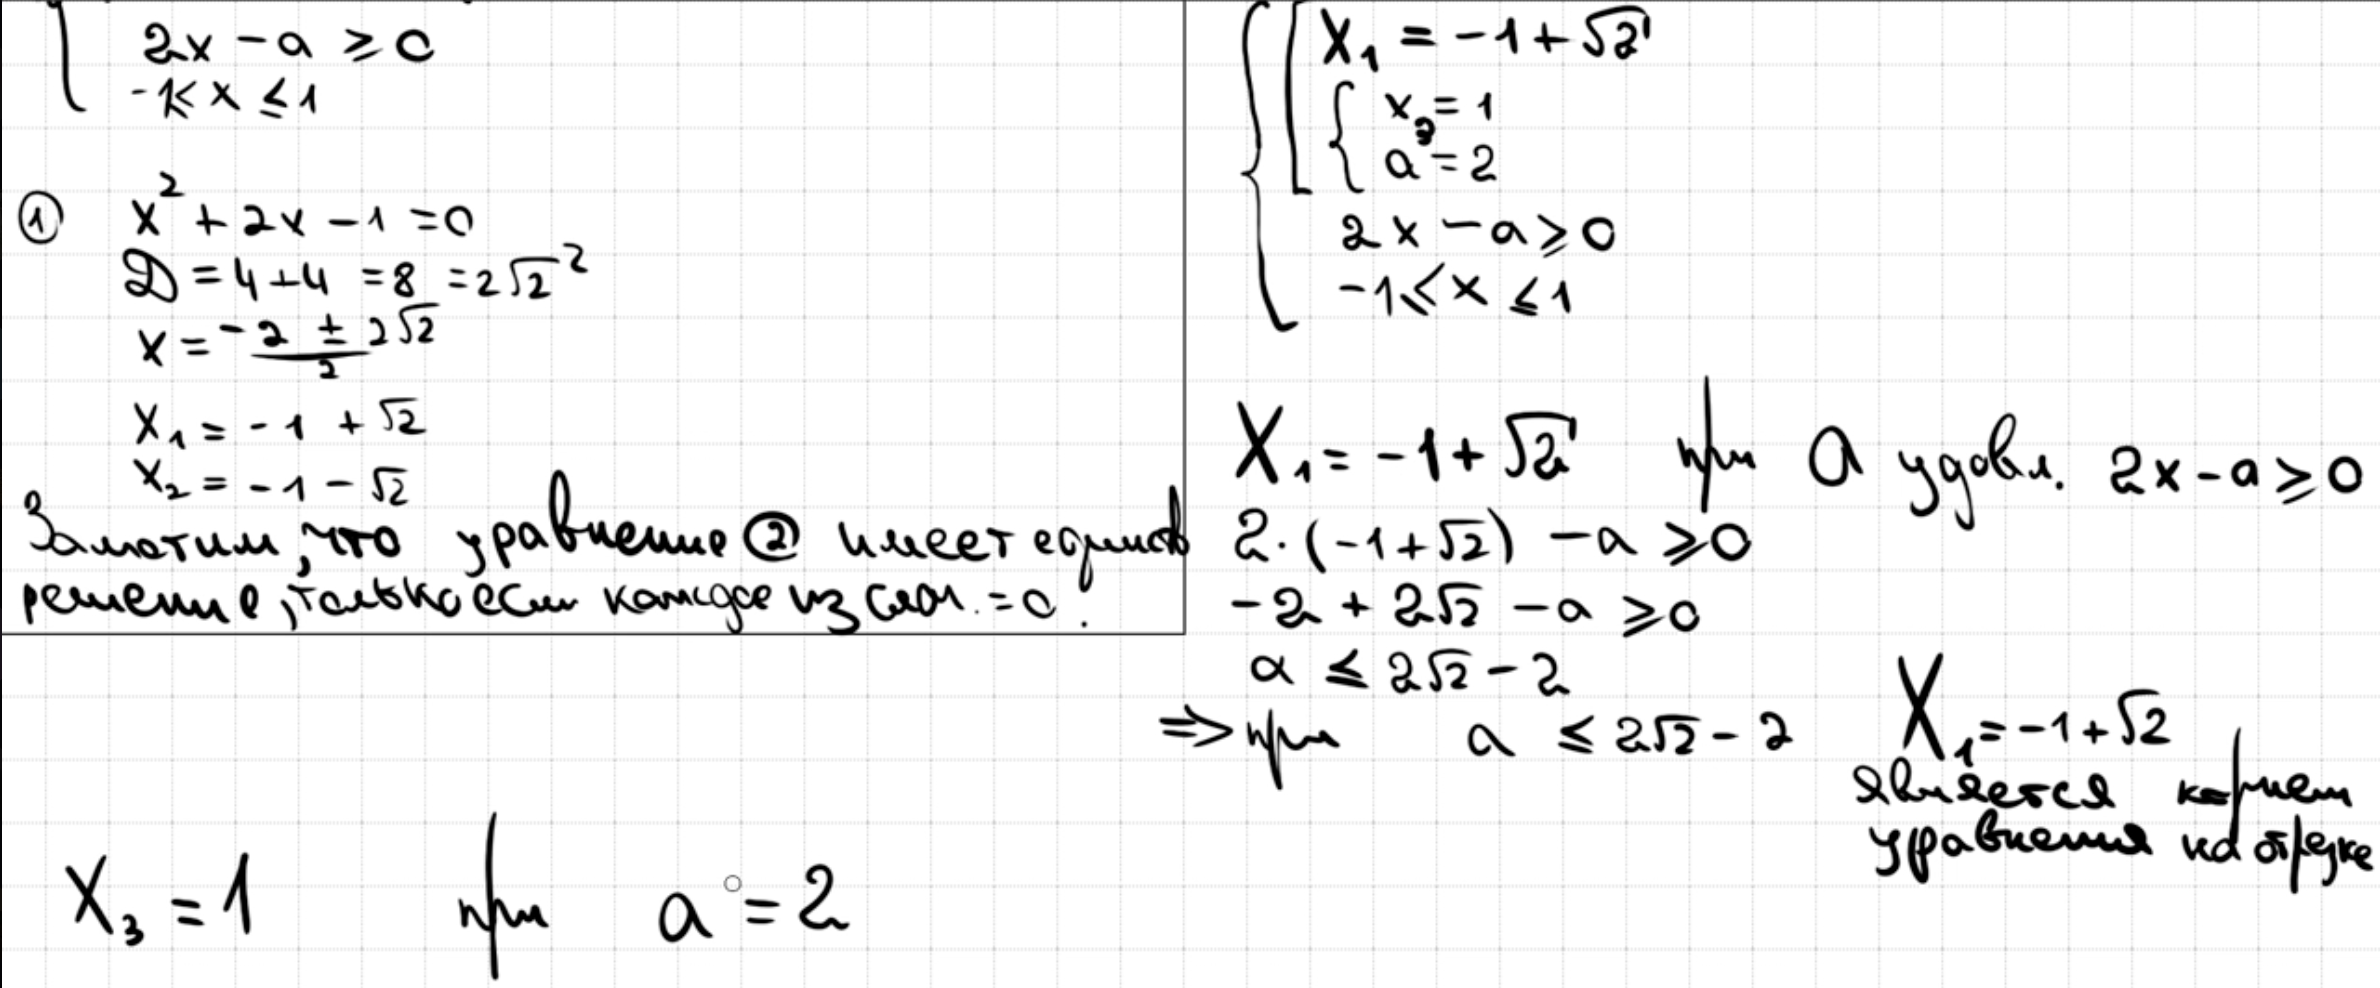 2x - a ≥ 0
-1 < x ≤ 1
① x² + 2x - 1 = 0
D = 4 + 4 = 8 = 2√2²
x = (-2 ± 2√2)/2
x₁ = -1 + √2
x₂ = -1 - √2
Заметим, что уравнение ② имеет единств
решение, только если каждое из слаг. = 0.
x₃ = 1 при a = 2
x₁ = -1 + √2
x₃ = 1
a = 2
2x - a ≥ 0
-1 ≤ x ≤ 1
x₁ = -1 + √2 при a удовл. 2x - a ≥ 0
2·(-1 + √2) - a ≥ 0
-2 + 2√2 - a ≥ 0
a ≤ 2√2 - 2
⇒ при a ≤ 2√2 - 2 x₁ = -1 + √2
является корнем
уравнения на отрезке